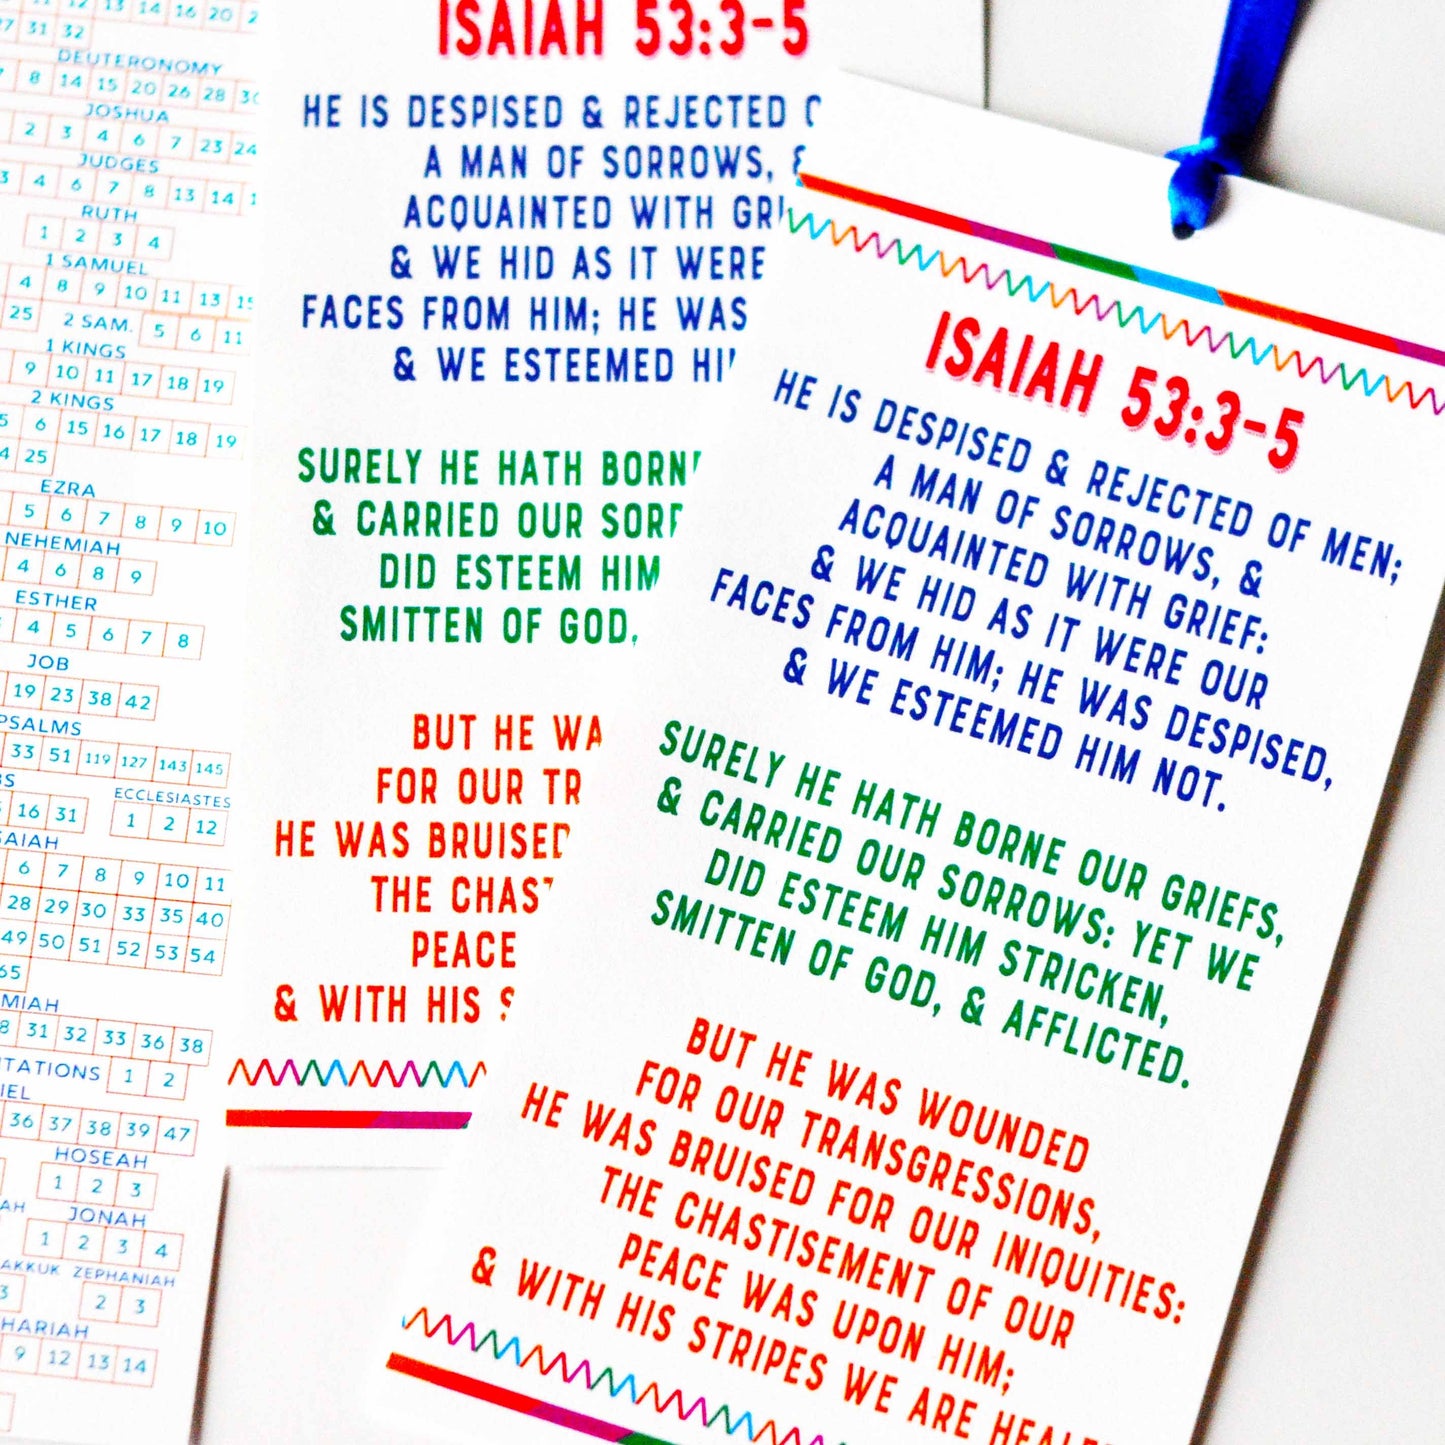 12 13 14 16 20
27 31 32
DEUTERONOMY
8 14 15 20 26 28
JOSHUA
2 3 4 6 7 23 24
JUDGES
3 4 6 7 8 13 14
RUTH
1 2 3 4
1 SAMUEL
4 8 9 10 11 13
25 2 SAM. 5 6 11
1 KINGS
9 10 11 17 18 19
2 KINGS
5 6 15 16 17 18 19
25
EZRA
5 6 7 8 9 10
NEHEMIAH
4 6 8 9
ESTHER
4 5 6 7 8
JOB
19 23 38 42
PSALMS
33 51 119 127 143 145
ECCLESIASTES
16 31 1 2 12
6 7 8 9 10 11
28 29 30 33 35 40
49 50 51 52 53 54
65
31 32 33 36 38
1 2
36 37 38 39 47
HOSEAH
1 2 3
JONAH
1 2 3 4
ZEPHANIAH
3 2 3
9 12 13 14
ISAIAH 53:3-5
HE IS DESPISED & REJECTED
A MAN OF SORROWS, &
ACQUAINTED WITH
& WE HID AS IT WERE
FACES FROM HIM; HE WAS
& WE ESTEEMED
SURELY HE HATH BORNE
& CARRIED OUR
DID ESTEEM HIM
SMITTEN OF GOD,
BUT HE
FOR OUR
HE WAS BRUISED
THE
PEACE
& WITH HIS
ISAIAH 53:3-5
HE IS DESPISED & REJECTED OF MEN;
A MAN OF SORROWS, &
ACQUAINTED WITH GRIEF:
& WE HID AS IT WERE OUR
FACES FROM HIM; HE WAS DESPISED,
& WE ESTEEMED HIM NOT.
SURELY HE HATH BORNE OUR GRIEFS,
& CARRIED OUR SORROWS: YET WE
DID ESTEEM HIM STRICKEN,
SMITTEN OF GOD, & AFFLICTED.
BUT HE WAS WOUNDED
FOR OUR TRANSGRESSIONS,
HE WAS BRUISED FOR OUR INIQUITIES:
THE CHASTISEMENT OF OUR
PEACE WAS UPON HIM;
& WITH HIS STRIPES WE ARE HEALED